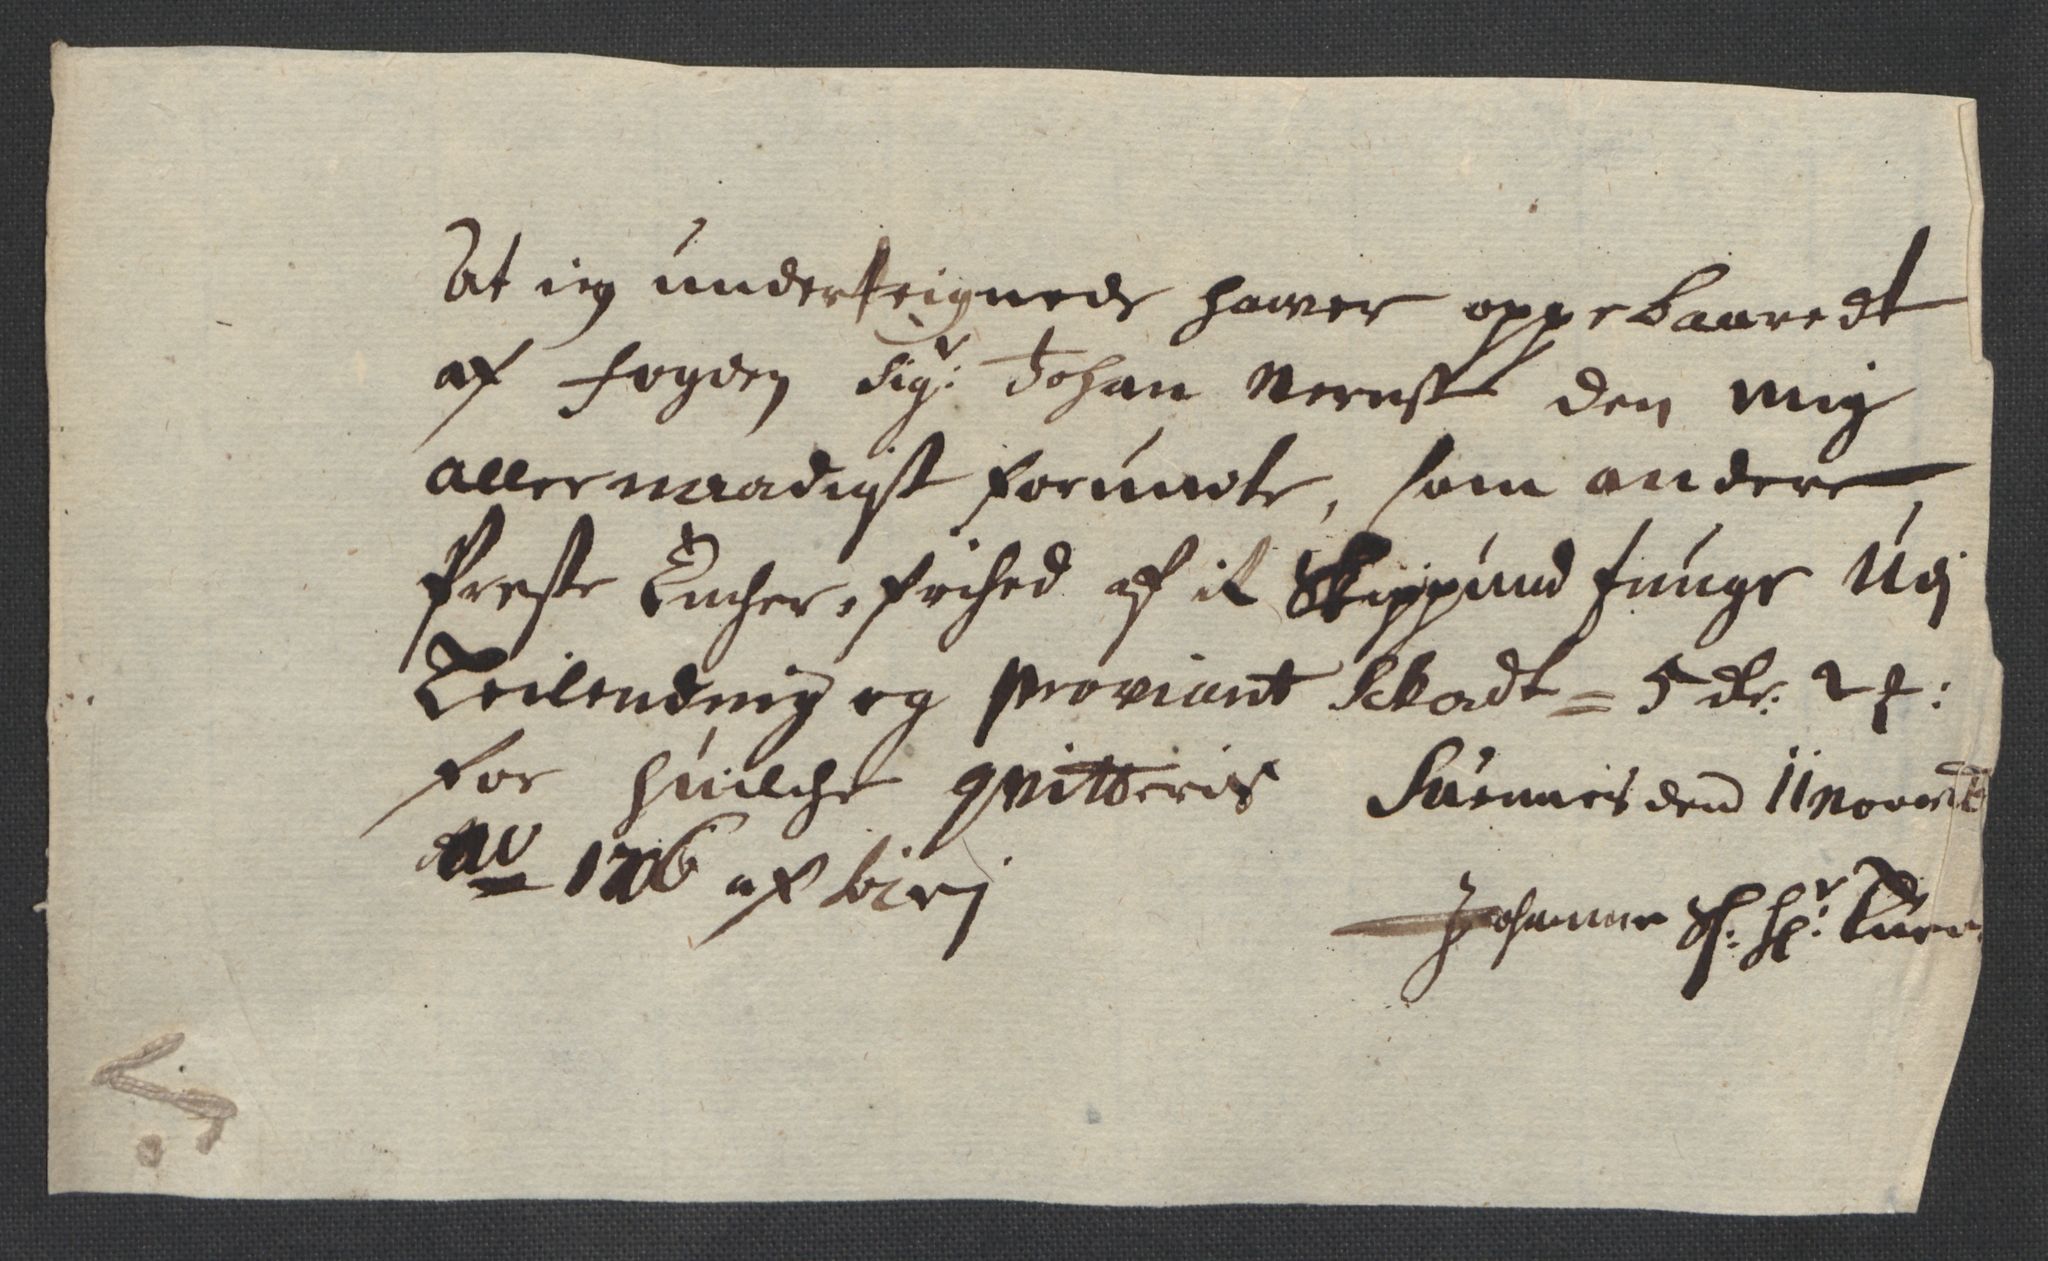 At ieg underteignede hawer oppebaaredt
af fogden Sigr: Johan Mernst den mig
allernaadigst forundte, som andere
Preste Encher, frihed af it Skippund tunge Udj
Leilending og proviant Skadt = 5 dr: 2 ß:
for huilche qvitteris Suennes den 11 Novemb
Ao 1706 af Birj
Johanne Sl: Hr: